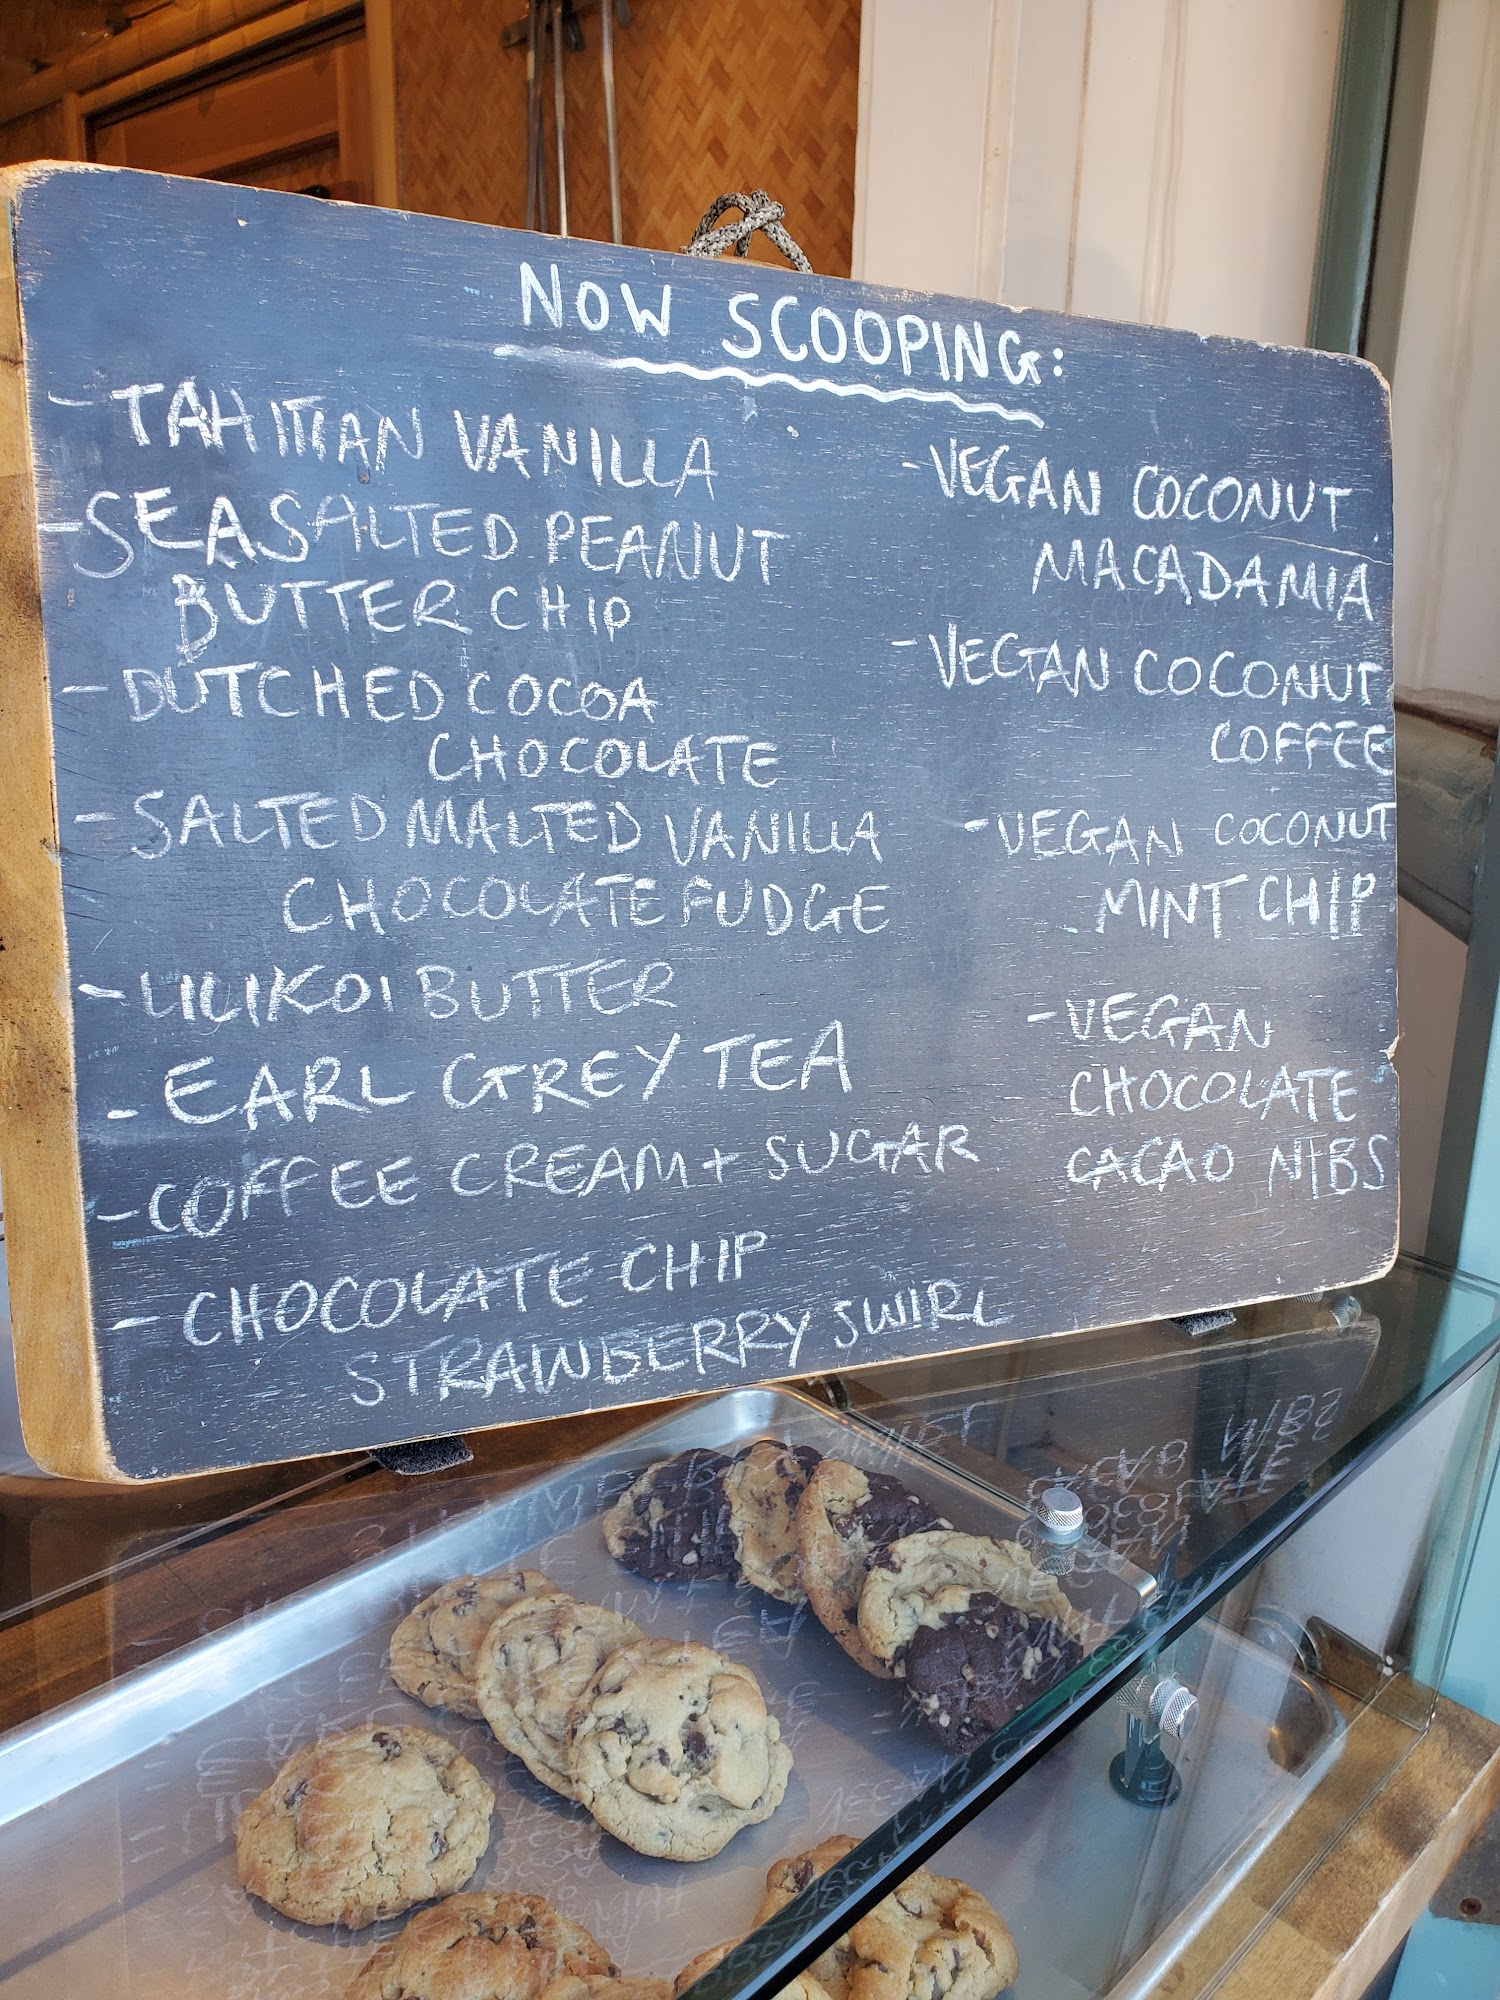 NOW SCOOPING:
- TAHITIAN VANILLA
- SEASALTED PEANUT
BUTTER CHIP
- DUTCHED COCOA
CHOCOLATE
- SALTED MALTED VANILLA
CHOCOLATE FUDGE
- LILIKOI BUTTER
- EARL GREY TEA
- COFFEE CREAM + SUGAR
- CHOCOLATE CHIP
STRAWBERRY SWIRL
- VEGAN COCONUT
MACADAMIA
- VEGAN COCONUT
COFFEE
- VEGAN COCONUT
MINT CHIP
- VEGAN
CHOCOLATE
CACAO NIBS